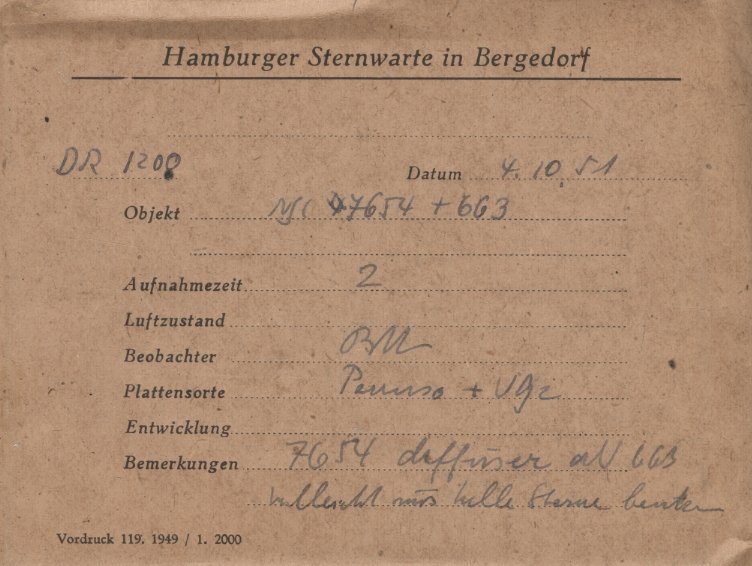 Hamburger Sternwarte in Bergedorf
DR 1200
Datum 4.10.51
Objekt NGC 7654 + 663
Aufnahmezeit 2
Luftzustand
Beobachter
Plattensorte + Vg2
Entwicklung
Bemerkungen 7654 diffuser als 663
vielleicht nur helle Sterne
Vordruck 119. 1949 / 1. 2000